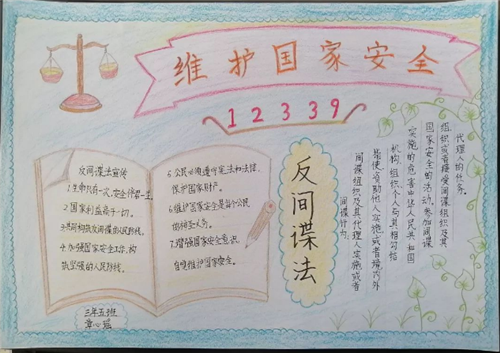 维护国家安全
12339
反间谍法宣传
1.生命只有一次,安全伴君一生。
2.国家利益高于一切。
3.共同构筑反间谍人民防线。
4.加强国家安全工作,构
筑坚强的人民防线。
5.公民必须遵守宪法和法律,
保护国家财产。
6.维护国家安全是每个公民
的神圣义务。
7.增强国家安全意识,
自觉维护国家安全。
反间谍法
代理人的任务。
组织或者接受间谍组织及其
国家安全的活动。参加间谍
实施的危害中华人民共和国
机构、组织、个人与其相勾结
指使、资助他人实施或者境内外
间谍组织及其代理人实施或者
间谍行为:
三年五班
章心瑶